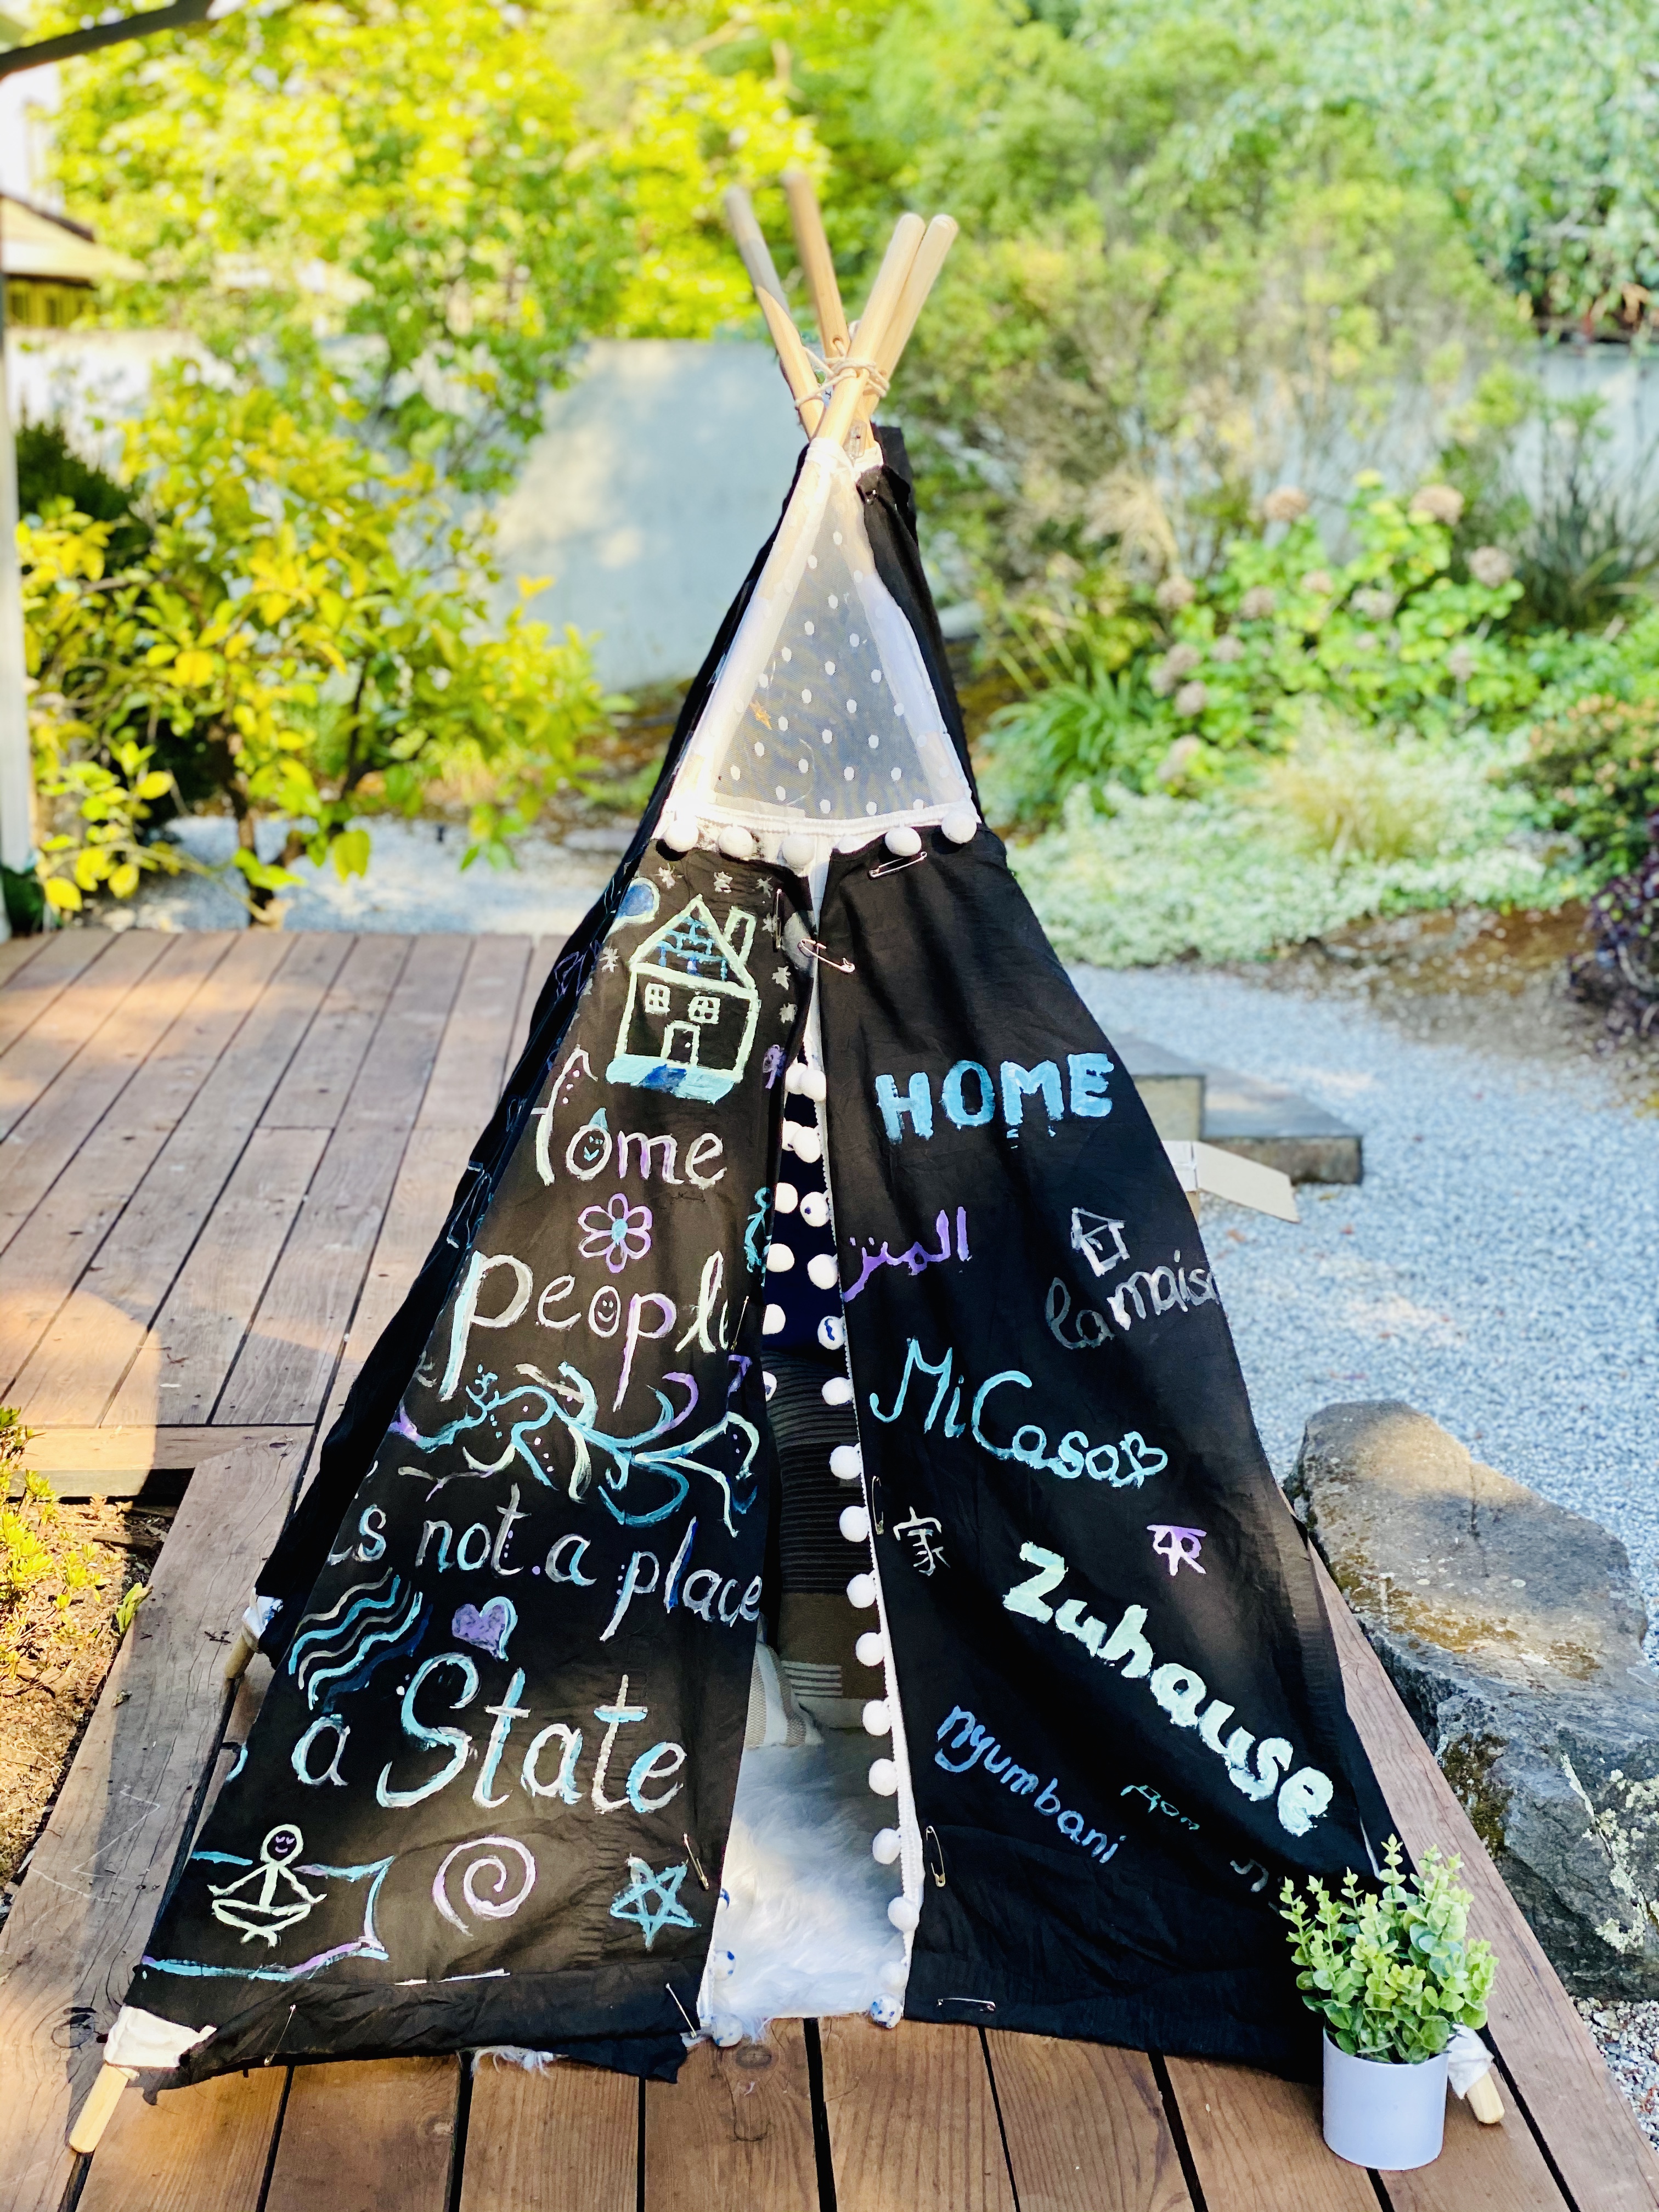 Home
people
is not a place
a State
HOME
المنز
la maiso
Mi Casa
家
Zuhause
nyumbani
дом